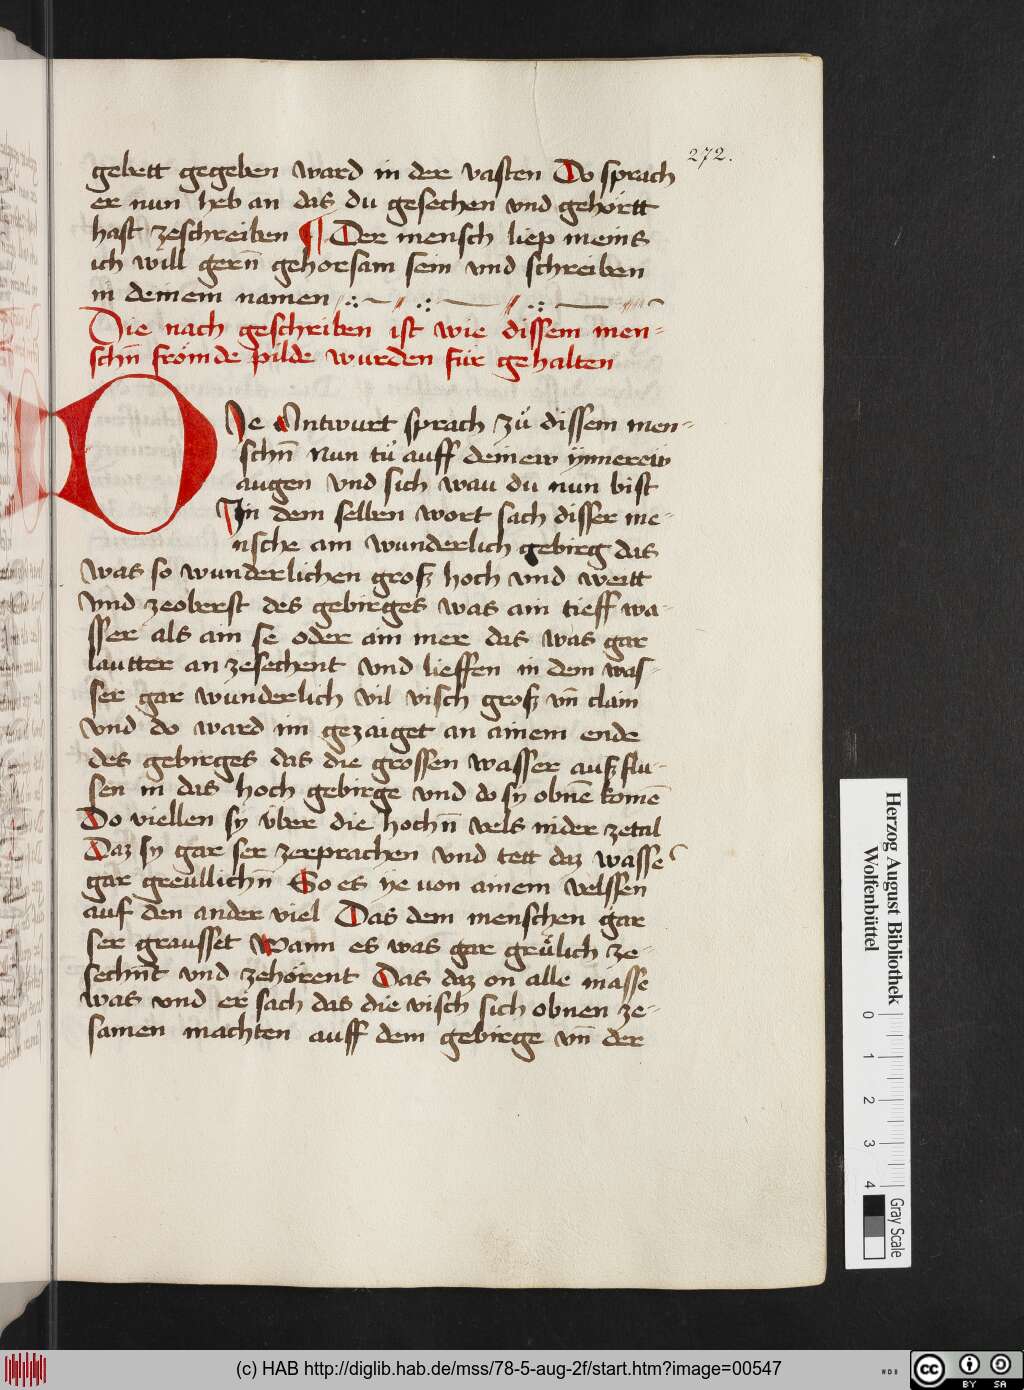 272.
gebett gegeben ward in der vasten Do sprach
er nun heb an das du gesechen vnd gehörtt
hast zeschreiben ¶ Der mensch liep meins
ich will gern̄ gehorsam sein vnd schreiben
in deinem namen
Die nach geschriben ist wie dissem men-
schn̄ frömde pilde wurden für gehalten
DIe Antwurt sprach zů dissem men-
schn̄ nun tů auff deinew ynnerew
augen vnd sich wau du nun bist
Jn dem selben wort sach disser me-
nsche am wunderlich gebirg das
was so wunderlichen groß hoch vnd weitt
vnd zeoberst des gebirges was ain tieff wa-
sser als ain se oder ain mer das was gar
lautter an zesechent vnd lieffen in dem was-
ser gar wunderlich vil visch groß vn̄ clain
vnd do ward im gezaiget an ainem ende
des gebirges das die grossen wasser auß flu-
sen in das hoch gebirge vnd do sy obnē komē
Do viellen sy über die hochn̄ vels nider zetal
Daz sy gar ser zerprachen vnd tett daz wasser
gar greullichn̄ So es ye von ainem velssen
auf den ander viel Das dem menschen gar
ser grausset Wann es was gar grülich ze-
sechn̄t vnd zehörent Das daz on alle masse
was vnd er sach das die visch sich obnen ze-
samen machten auff dem gebirge vn̄ der
Herzog August Bibliothek
Wolfenbüttel
0 1 2 3 4
Gray Scale
(c) HAB http://diglib.hab.de/mss/78-5-aug-2f/start.htm?image=00547
WDB
cc BY SA